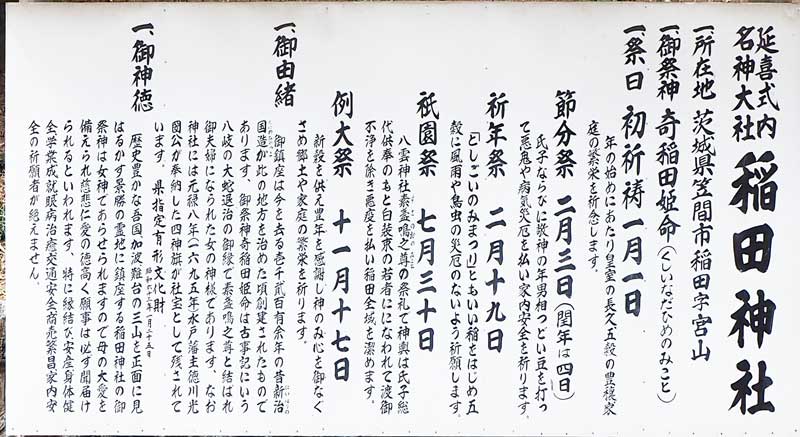 延喜式内
名神大社
稲田神社
一、所在地 茨城県笠間市稲田字宮山
一、御祭神 奇稲田姫命(くしいなだひめのみこと)
一、祭日 初祈祷 一月一日
年の始めにあたり皇室の長久五穀の豊穣家
庭の繁栄を祈念します。
節分祭 二月三日(閏年は四日)
氏子ならびに敬神の年男相つどい豆を打っ
て悪鬼や病気災厄を払い家内安全を祈ります。
祈年祭 二月十九日
「としごいのみまつり」ともいい稲をはじめ五
穀に風雨や鳥虫の災厄のないよう祈願します。
祇園祭 七月三十日
八雲神社素盞鳴之尊の祭礼て神輿は氏子総
代供奉のもと白装束の若者にになわれて渡御
不浄を除き悪疫を払い稲田全域を潔めます。
例大祭 十一月十七日
新穀を供え豊年を感謝し神のみ心を御なぐ
さめ郷土や家庭の繁栄を祈ります。
一、御由緒
御鎮座は今を去る壱千貳百有余年の昔新治
国造が此の地方を治めた頃創建されたもので
あります、御祭神奇稲田姫命は古事記にいう
八岐の大蛇退治の御縁で素盞鳴之尊と結ばれ
御夫婦になられた女の神様であります、なお
神社には元禄八年(一六九五年)水戸藩主徳川光
圀公が奉納した四神旗が社宝として残されて
います。 県指定有形文化財
一、御神徳
歴史豊かな吾国、加波、難台の三山を正面に見
はるかす景勝の霊地に鎮座する稲田神社の御
祭神は女神であらせられますので母の大愛を
備えられ慈悲仁愛の徳高く願事は必ず聞届け
られるといわれます、特に縁結び安産身体健
全学業成就眼病治癒交通安全商売繁昌家内安
全の祈願者が絶えません。